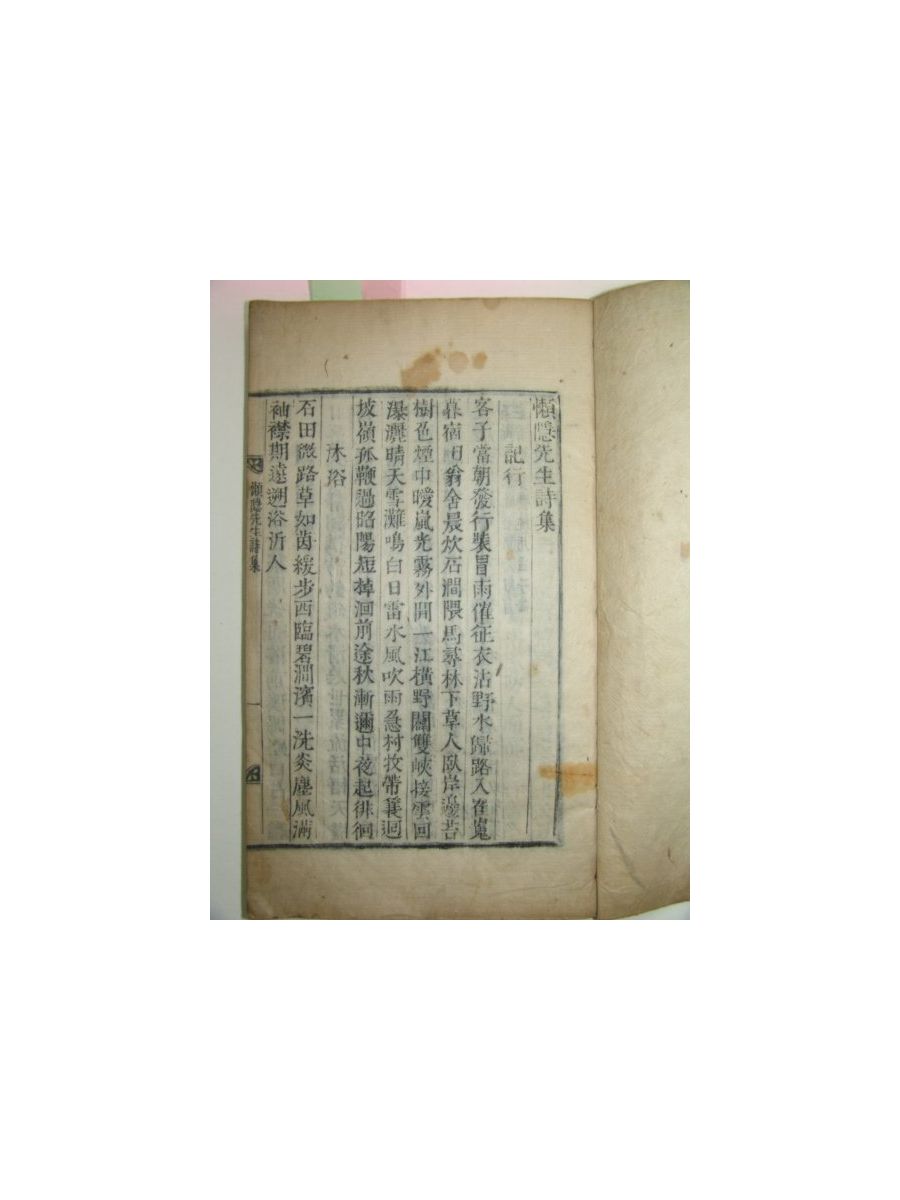 懶隱先生詩集
記行
客子當朝發行裝冒雨催征衣沾野水歸路入崔嵬
暮宿田翁舍晨炊石澗隈馬尋林下草人臥岸邊苔
樹色煙中曖嵐光霧外開一江橫野闊雙峽接雲回
瀑灑晴天雪灘鳴白日雷水風吹雨急村技帶蓑迴
坡嶺孤鞭過昭陽短棹洄前途秋漸邇中夜起徘徊
沐浴
石田微路草如茵緩步西臨碧澗濱一洗炎塵風滿
袖襟期遠遡浴沂人
懶隱先生詩集
一